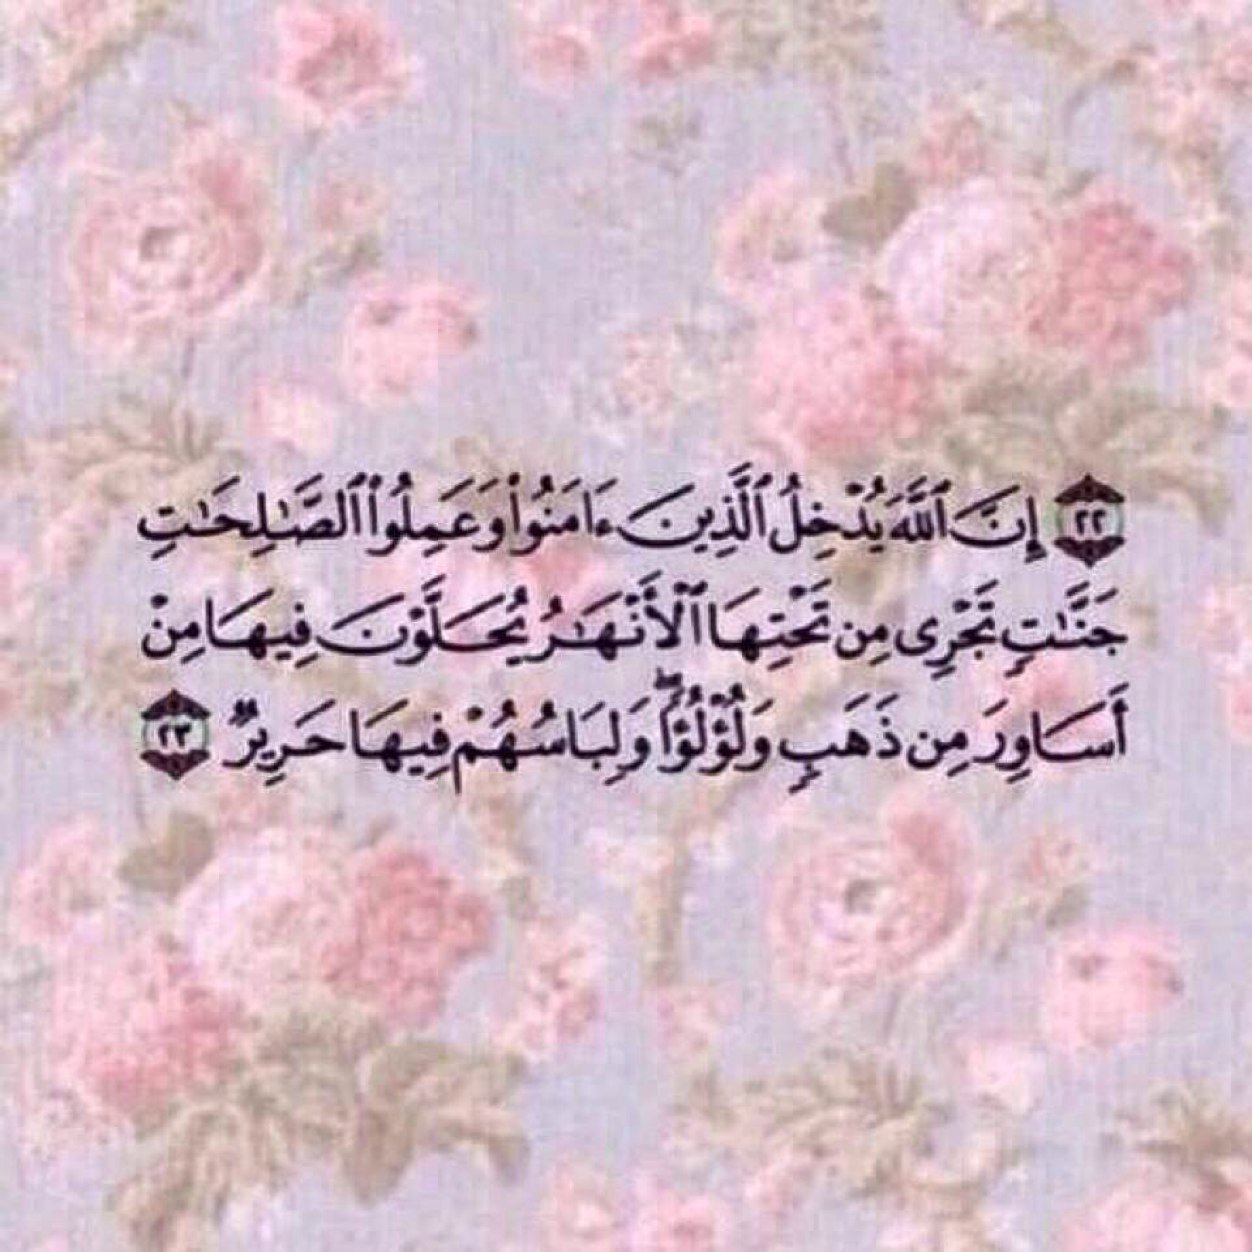 ٢٢ إِنَّ ٱللَّهَ يُدْخِلُ ٱلَّذِينَ ءَامَنُوا۟ وَعَمِلُوا۟ ٱلصَّـٰلِحَـٰتِ
جَنَّـٰتٍ تَجْرِى مِن تَحْتِهَا ٱلْأَنْهَـٰرُ يُحَلَّوْنَ فِيهَا مِنْ
أَسَاوِرَ مِن ذَهَبٍ وَلُؤْلُؤًا ۖ وَلِبَاسُهُمْ فِيهَا حَرِيرٌ ٢٣